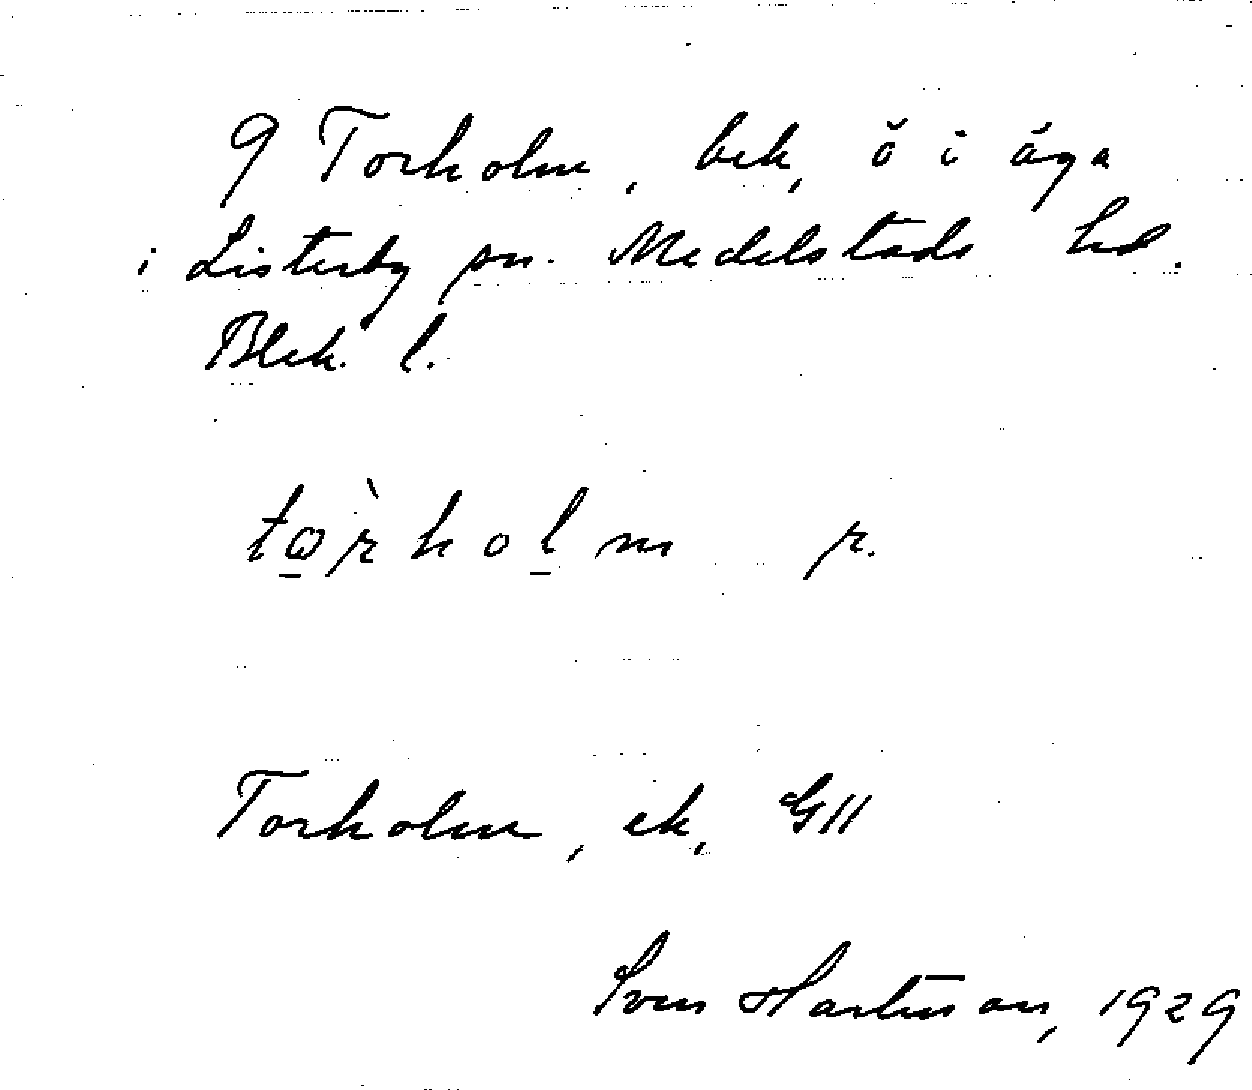 9 Torholm, bek, ö i äga
i Listerby sn. Medelstads hd.
Blek. l.
to̱r̀hoḻm r.
Torholm, ek, G11
Sven Hartman, 1929